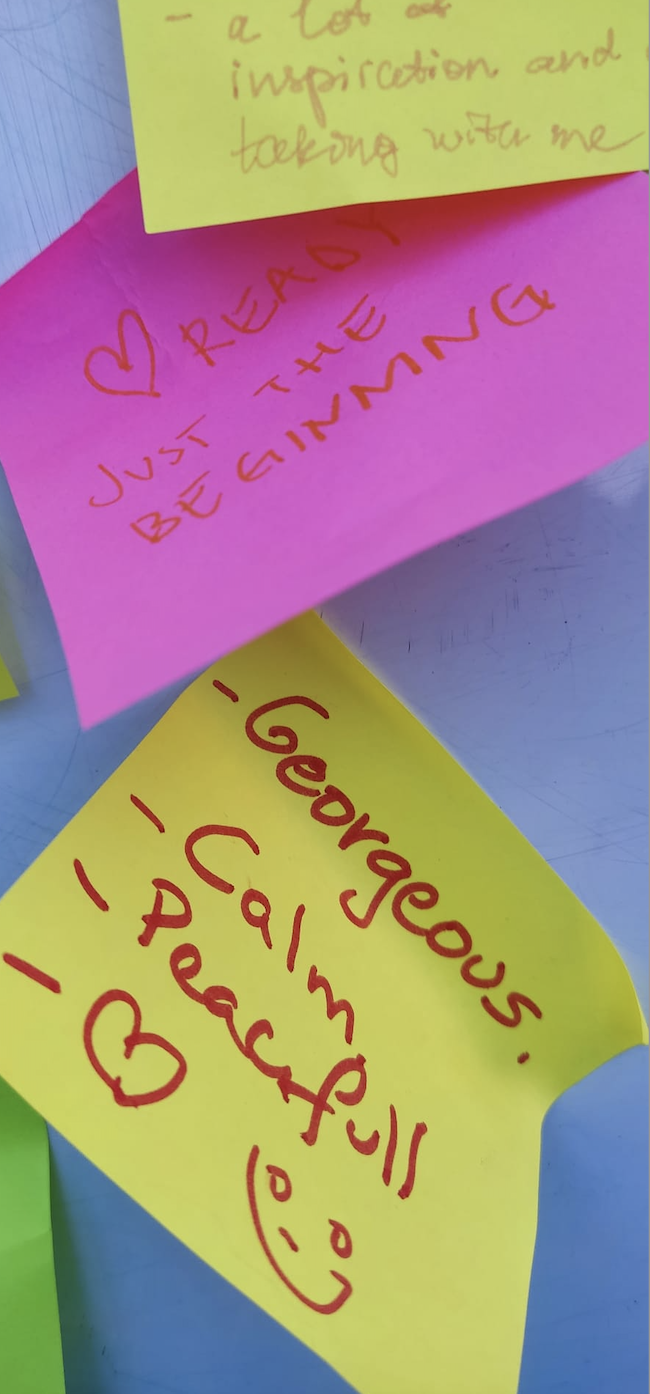 - a lot of
inspiration and
taking with me
♡ READY
JUST THE
BEGINNING
- Georgeous.
- Calm
- Peacefull
- ♡